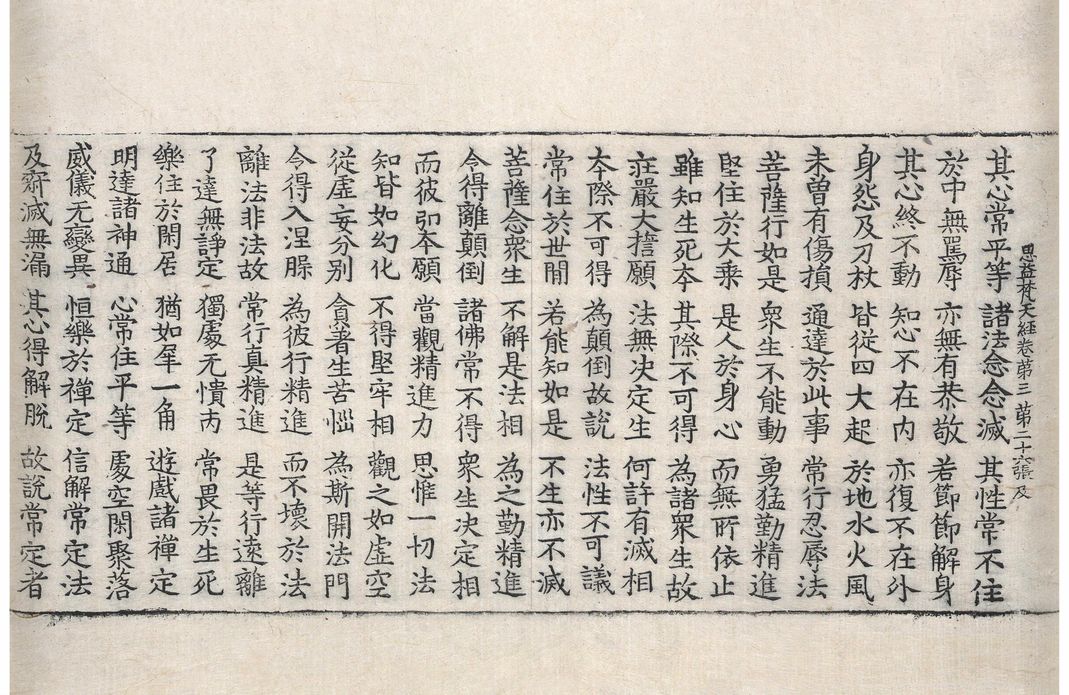 思益梵天經卷第三 第二十六張 及
其心常平等 諸法念念滅 其性常不住
於中無罵辱 亦無有恭敬 若節節解身
其心終不動 知心不在内 亦復不在外
身怨及刀杖 皆從四大起 於地水火風
未曾有傷損 通達於此事 常行忍辱法
菩薩行如是 衆生不能動 勇猛勤精進
堅住於大乘 是人於身心 而無所依止
雖知生死本 其際不可得 為諸衆生故
莊嚴大誓願 法無决定生 何許有滅相
本際不可得 為顛倒故說 法性不可議
常住於世間 若能知如是 不生亦不滅
菩薩念衆生 不解是法相 為之勤精進
令得離顛倒 諸佛常不得 衆生决定相
而彼引本願 當觀精進力 思惟一切法
知皆如幻化 不得堅牢相 觀之如虛空
從虛妄分別 貪著生苦惱 為斯開法門
令得入涅槃 為彼行精進 而不壞於法
離法非法故 常行真精進 是等行遠離
了達無諍定 獨處无憒丙 常畏於生死
樂住於閑居 猶如犀一角 遊戲諸禪定
明達諸神通 心常住平等 處空閑聚落
威儀无變異 恒樂於禪定 信解常定法
及寂滅無漏 其心得解脫 故說常定者